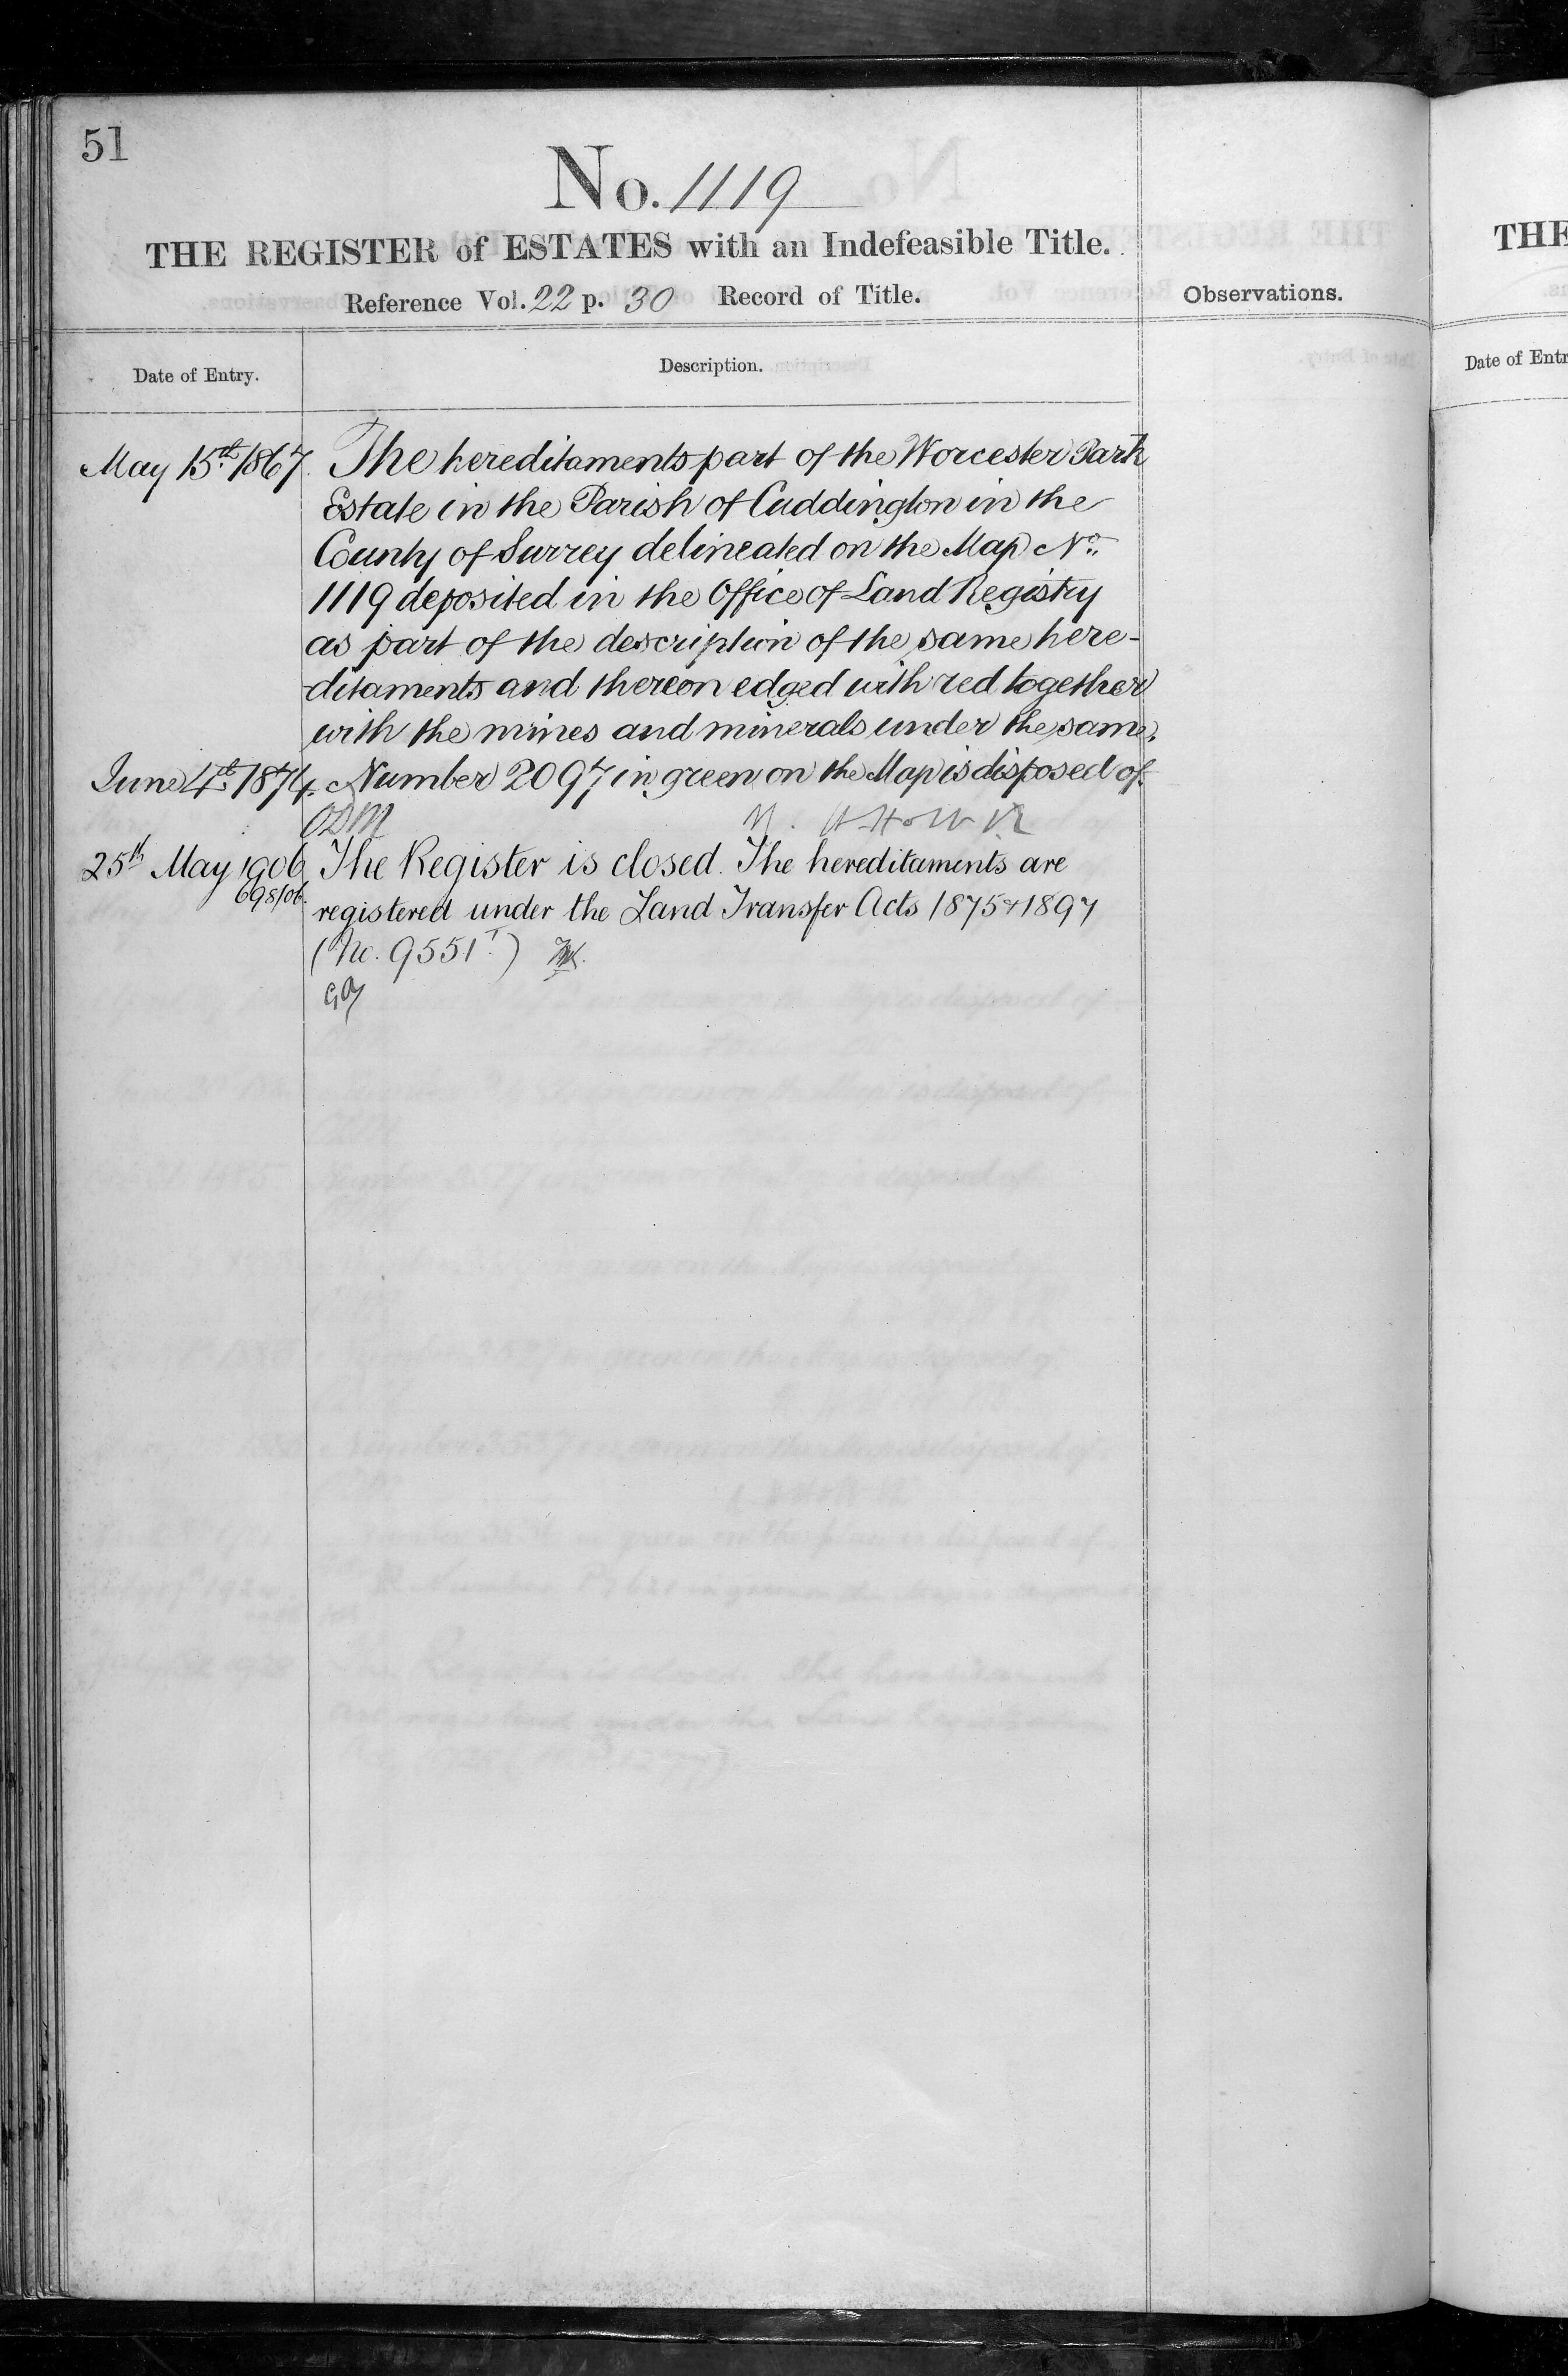 51
No. 1119
THE REGISTER of ESTATES with an Indefeasible Title.
Reference Vol. 22 p. 30 Record of Title.
Observations.
Date of Entry.
Description.
May 15th 1867. The hereditaments part of the Worcester Park
Estate in the Parish of Cuddington in the
County of Surrey delineated on the Map No.
1119 deposited in the Office of Land Registry
as part of the description of the same here-
ditaments and thereon edged with red together
with the mines and minerals under the same.
June 4th 1874. Number 2097 in green on the Map is disposed of.
ODM
25th May 1906 The Register is closed. The hereditaments are
698/06.
registered under the Land Transfer Acts 1875 & 1897
(No. 9551)
THE
Date of Entr